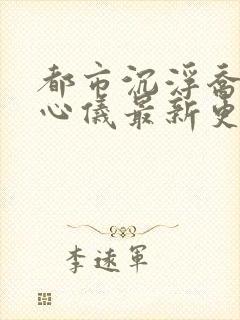 都市沉浮乔
心仪最新更
李逺军